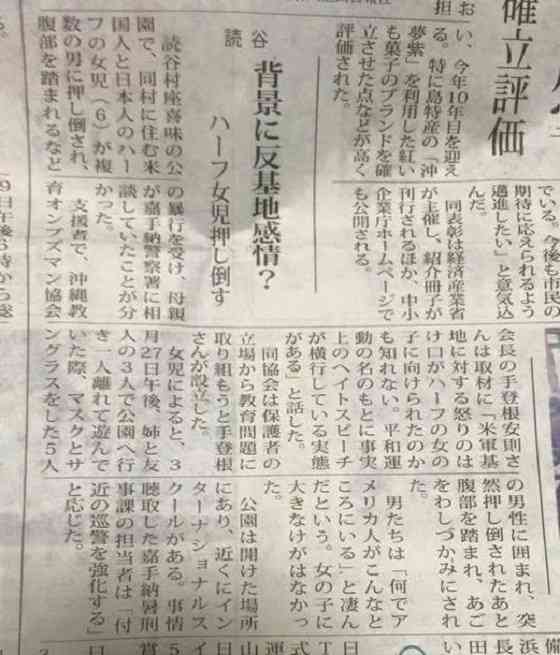 確立評価
い、今年10年目を迎え
る。特に島特産の「沖
夢紫」を利用した紅い
も菓子のブランドを確
立させた点などが高く
評価された。
でいる。今後も市民の
期待に応えられるよう
邁進したい」と意気込
んだ。
同表彰は経済産業省
が主催し、紹介冊子が
刊行されるほか、中小
企業庁ホームページで
も公開される。
読谷
背景に反基地感情?
ハーフ女児押し倒す
読谷村座喜味の公
園で、同村に住む米
国人と日本人のハー
フの女児(6)が複
数の男に押し倒され、
腹部を踏まれるなど
の暴行を受け、母親
が嘉手納警察署に相
談していたことが分
かった。
支援者で、沖縄教
育オンブズマン協会
会長の手登根安則さ
んは取材に「米軍基
地に対する怒りのは
け口がハーフの女の
子に向けられたのか
も知れない。平和運
動の名のもとに事実
上のヘイトスピーチ
が横行している実態
がある」と話した。
同協会は保護者の
立場から教育問題に
取り組もうと手登根
さんが設立した。
女児によると、3
月27日午後、姉と友
人の3人で公園へ行
き一人離れて遊んで
いた際、マスクとサ
ングラスをした5人
の男性に囲まれ、突
然押し倒されたあと
腹部を踏まれ、あご
をわしづかみにされ
た。
男たちは「何でア
メリカ人がこんなと
ころにいる」と凄ん
だという。女の子に
大きなけがはなかっ
た。
公園は開けた場所
にあり、近くにイン
ターナショナルス
クールがある。事情
聴取した嘉手納署刑
事課の担当者は「付
近の巡警を強化する」
と応じた。